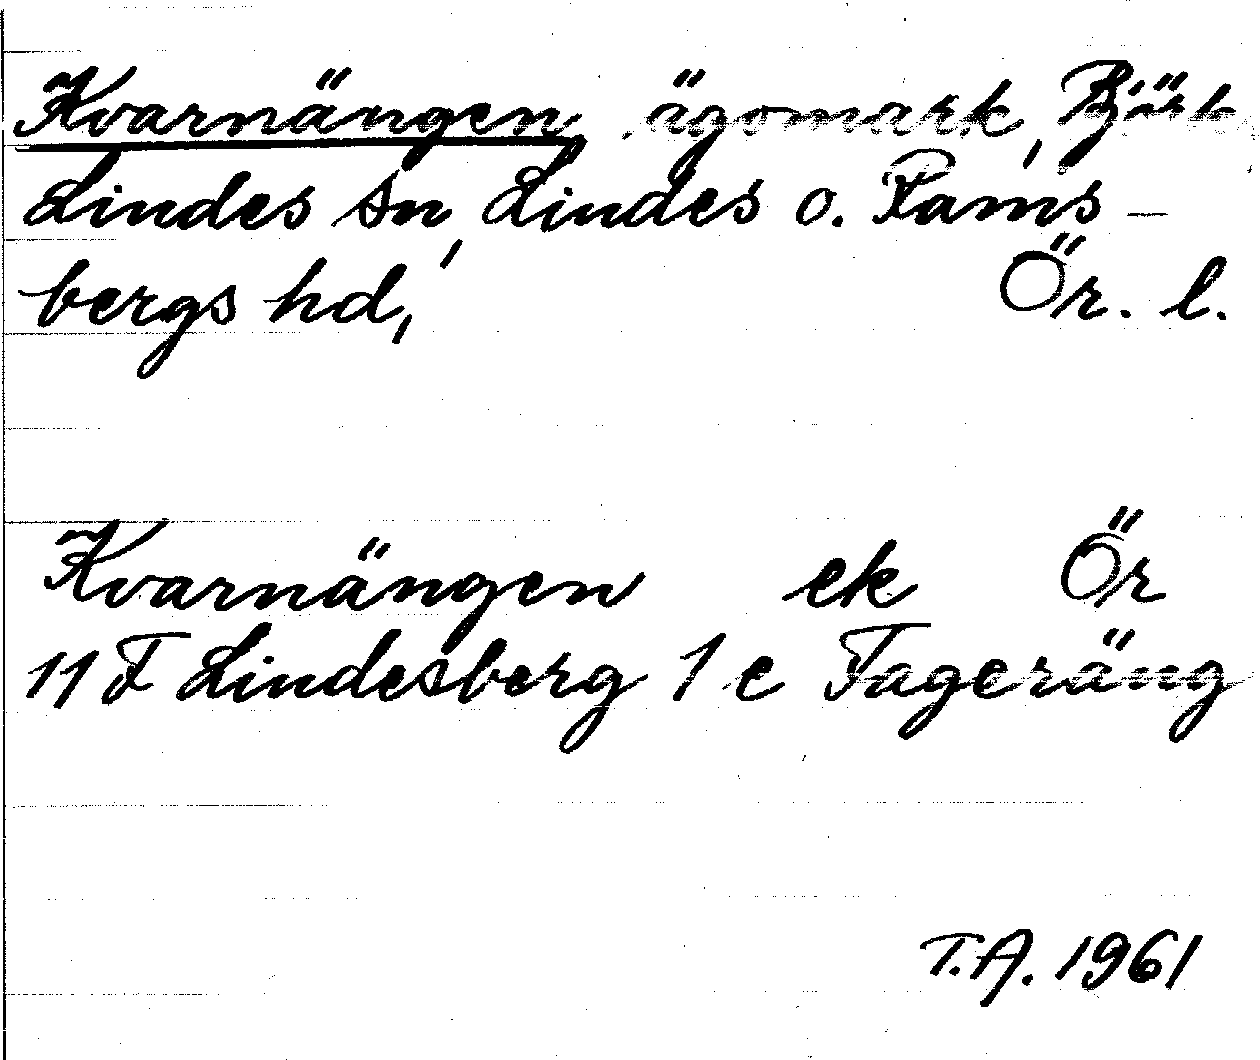 Kvarnängen, ägomark, Björk
Lindes sn, Lindes o. Rams-
bergs hd, Ör. l.
Kvarnängen ek Ör
11 F Lindesberg 1 e Fageräng
T.A. 1961